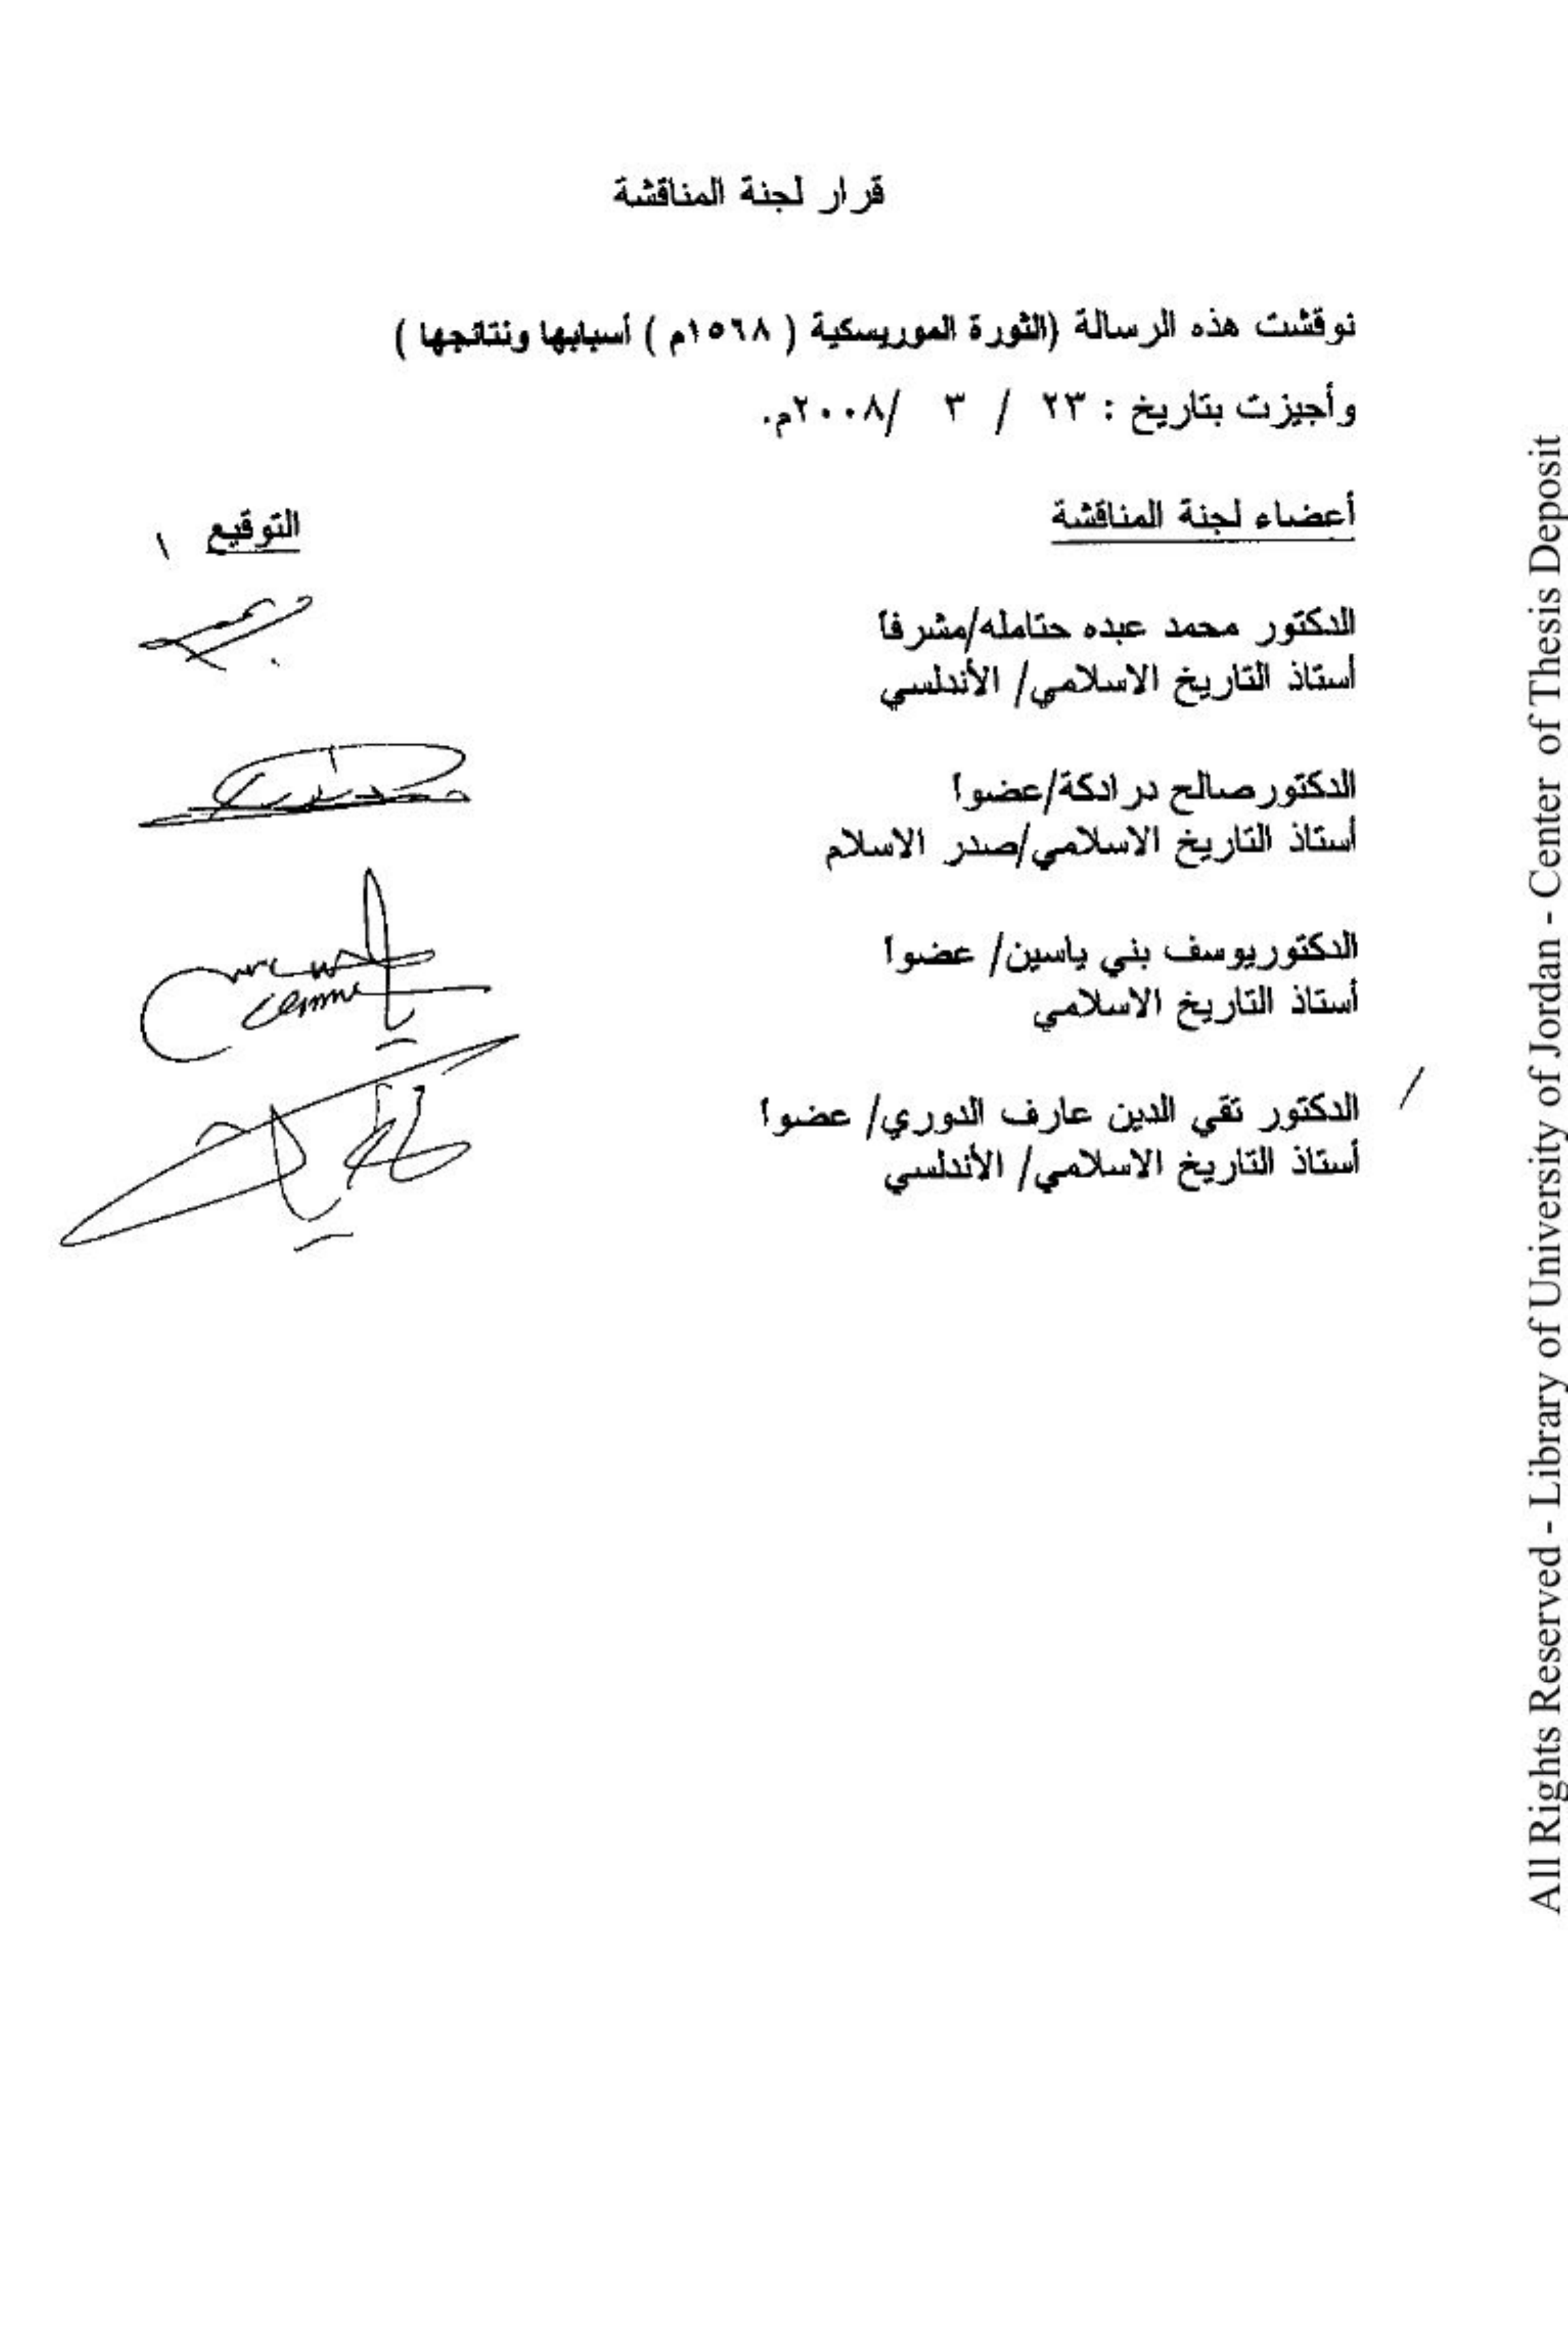 قرار لجنة المناقشة
نوقشت هذه الرسالة (الثورة الموريسكية ( ١٥٦٨م ) أسبابها ونتائجها )
وأجيزت بتاريخ : ٢٣ / ٣ /٢٠٠٨م.
أعضاء لجنة المناقشة
التوقيع
الدكتور محمد عبده حتامله/مشرفاً
أستاذ التاريخ الاسلامي/ الأندلسي
الدكتورصالح درادكة/عضواً
أستاذ التاريخ الاسلامي/صدر الاسلام
الدكتوريوسف بني ياسين/ عضواً
أستاذ التاريخ الاسلامي
الدكتور تقي الدين عارف الدوري/ عضواً
أستاذ التاريخ الاسلامي/ الأندلسي
All Rights Reserved - Library of University of Jordan - Center of Thesis Deposit